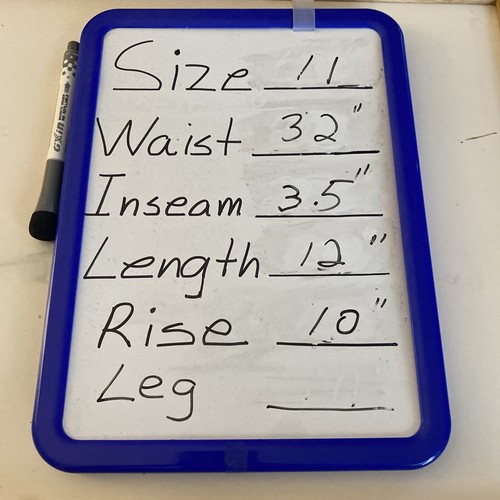 Size 11
Waist 32"
Inseam 3.5"
Length 12"
Rise 10"
Leg